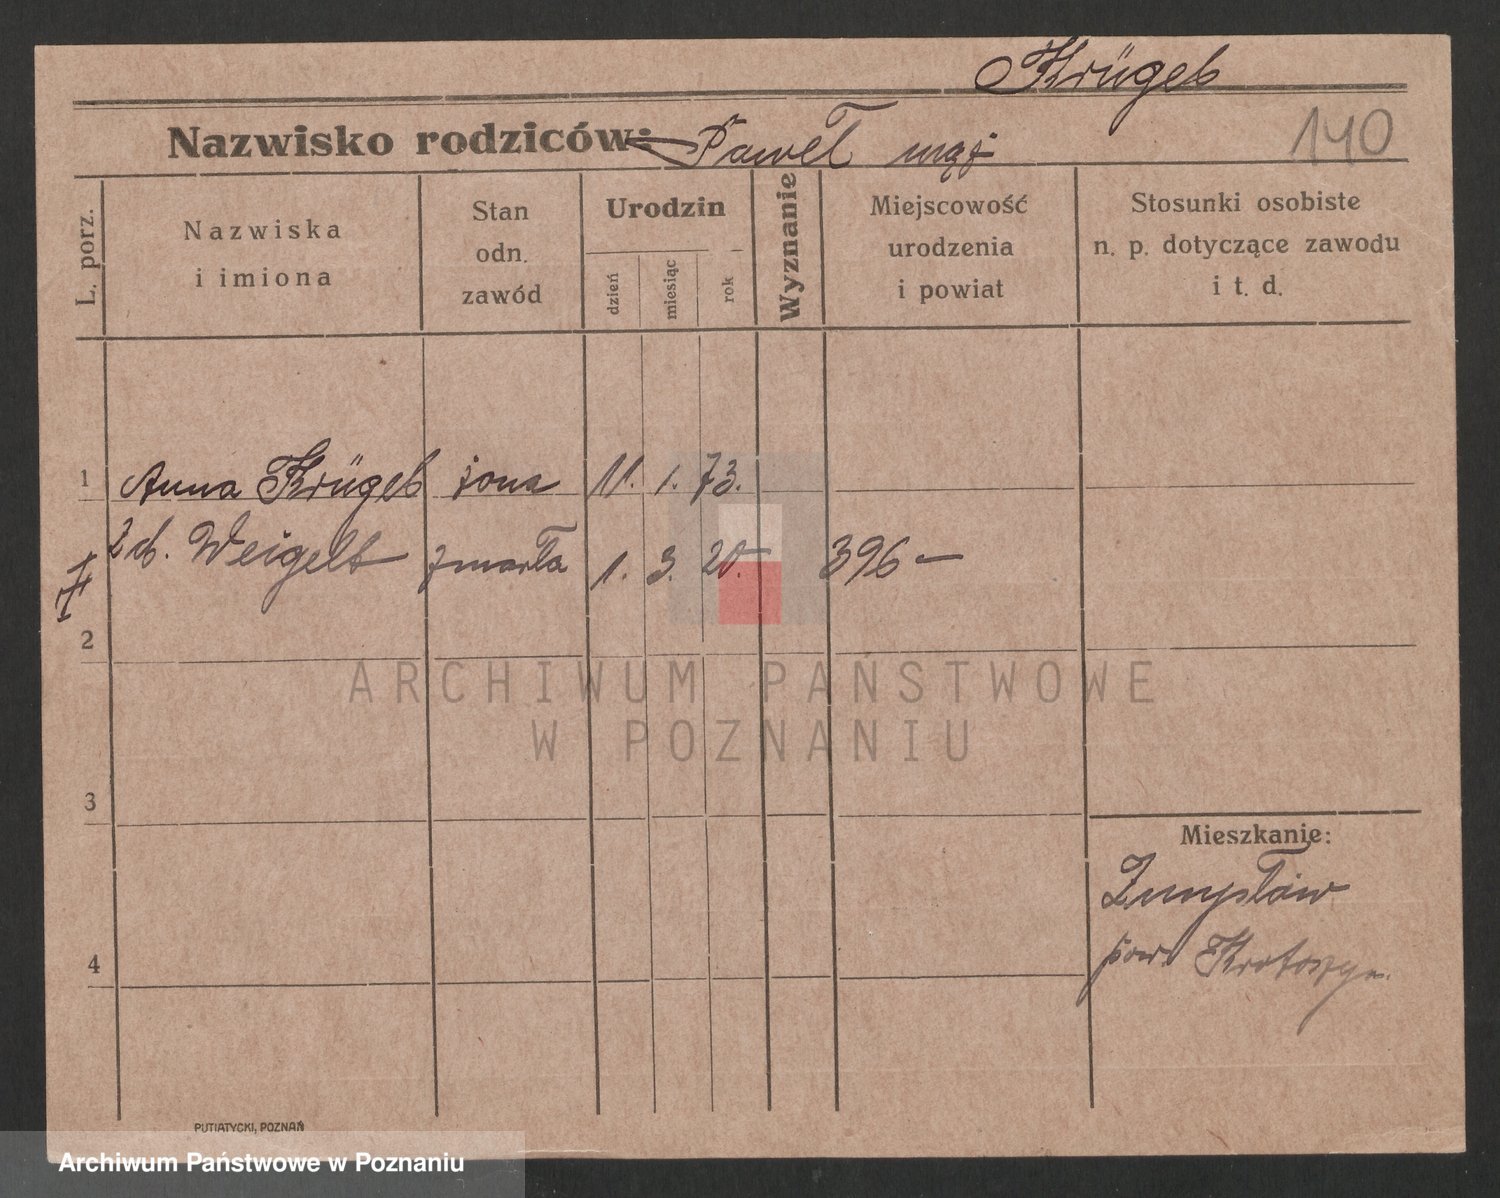 Krügeb
Nazwisko rodziców: Paweł mąż
140
L. porz.
Nazwiska
i imiona
Stan
odn.
zawód
Urodzin
dzień
miesiąc
rok
Wyznanie
Miejscowość
urodzenia
i powiat
Stosunki osobiste
n. p. dotyczące zawodu
i t. d.
1 Anna Krügeb żona 11. 1. 73.
Weigelt zmarła 1. 3. 20. 396 —
2
ARCHIWUM PAŃSTWOWE
W POZNANIU
3
Mieszkanie:
Zmysłów
pow. Krotoszyn.
4
PUTIATYCKI, POZNAŃ
Archiwum Państwowe w Poznaniu